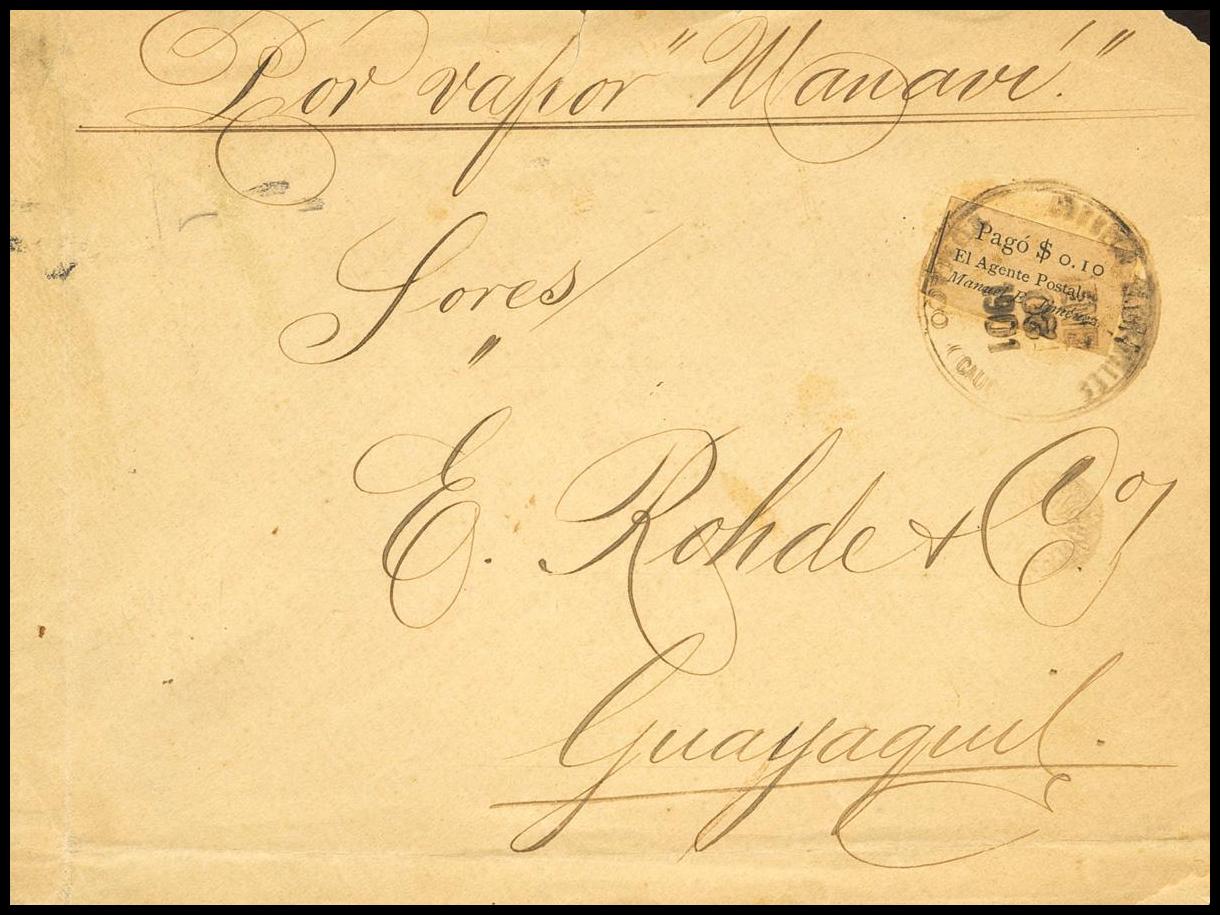 Por vapor "Manaví."
Sores
"
E. Rohde & Co/
Guayaquil.
Pagó $ 0.10
El Agente Postal,
Manuel E. Jiménez
1901
20